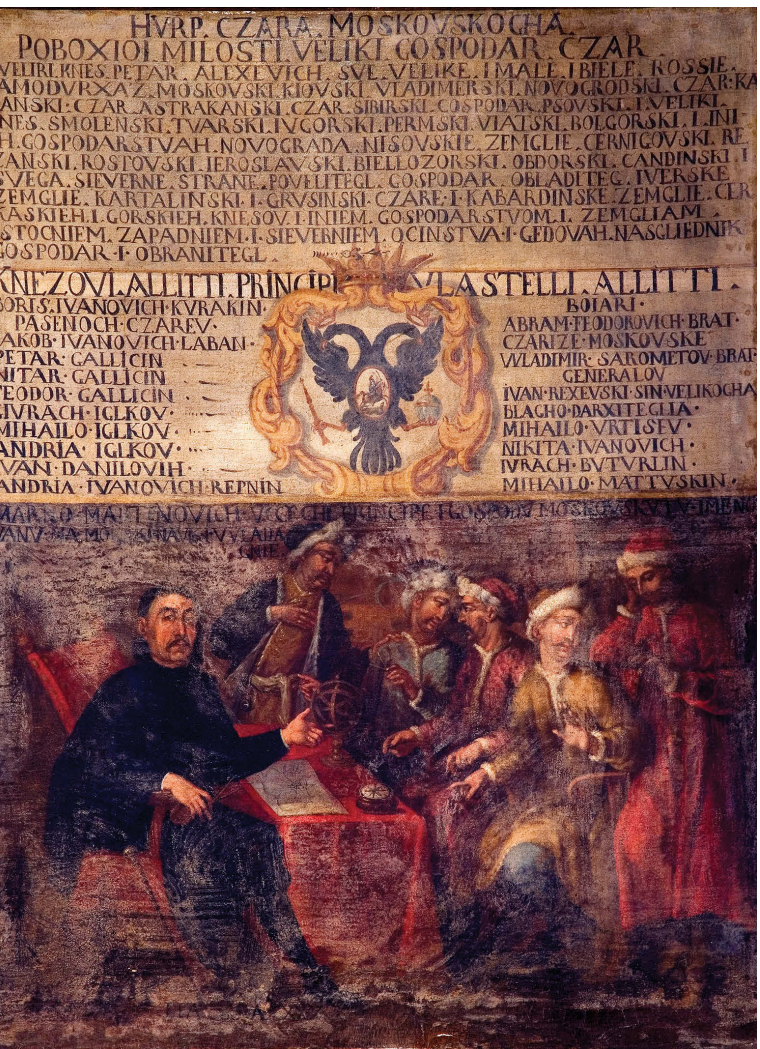 HVRP. CZARA. MOSKOVSKOGHA.
POBOXIOI. MILOSTI. VELIKI. GOSPODAR. CZAR
VELIRI. KNES. PETAR. ALEXEVICH. SVE. VELIKE. I MALE. I BIELE. ROSSIE.
AMODVRXAZ. MOSKOVSKI. KIOVSKI. VLADIMERSKI. NOVOGRODSKI. CZAR. KA
ANSKI. CZAR. ASTRAKANSKI. CZAR. SIBIRSKI. GOSPODAR. PSOVSKI. I. VELIKI.
NES. SMOLENSKI. TVARSKI. IVGORSKI. PERMSKI. VIATSKI. BOLGORSKI. I. INI
H. GOSPODARSTVAH. NOVOGRADA. NISOVSKIE. ZEMGLIE. CERNIGOVSKI. RE
ZANSKI. ROSTOVSKI. IEROSLAVSKI. BIELLOZORSKI. OBDORSKI. CANDINSKI. I
SVEGA. SIEVERNE. STRANE. POVELITEGL. GOSPODAR. OBLADITEG. IVERSKE
ZEMGLIE. KARTALINSKI. I. GRVSINSKI. CZARE. I. KABARDINSKE. ZEMGLIE. CER
KASKIEH. I. GORSKIEH. KNESOV. I. INIEM. GOSPODARSTVOM. I. ZEMGLIAM.
STOCNIEM. ZAPADNIEM. I. SIEVERNIEM. OCINSTVA. I. GEDOVAH. NASGLIEDNIK
GOSPODAR. I. OBRANITEGL.
KNEZOVI. ALLITTI. PRINCIPI VLASTELLI. ALLITTI.
BORIS. IVANOVICH. KVRAKIN.
PASENOCH. CZAREV.
IAKOB. IVANOVICH. LABAN.
PETAR. GALLICIN
NITAR. GALLICIN
TEODOR. GALLICIN
GIVRACH. IGLKOV.
MIHAILO. IGLKOV.
ANDRIA. IGLKOV.
IVAN. DANILOVIH.
ANDRIA. IVANOVICH. REPNIN
BOIARI.
ABRAM. FEODOROVICH. BRAT.
CZARIZE. MOSKOVSKE
VVLADIMIR. SAROMETOV. BRAT.
GENERALOV
IVAN. REXEVSKI. SIN. VELIKOGHA
BLAGHO. DARXITEGLIA.
MIHAILO. VRTISEV.
NIKITA. IVANOVICH.
IVRACH. BVTVRLIN.
MIHAILO. MATTVSKIN.
MARKO. MARTENOVICH. PRINCIPE. I. GOSPODV. MOSKOVSKV.